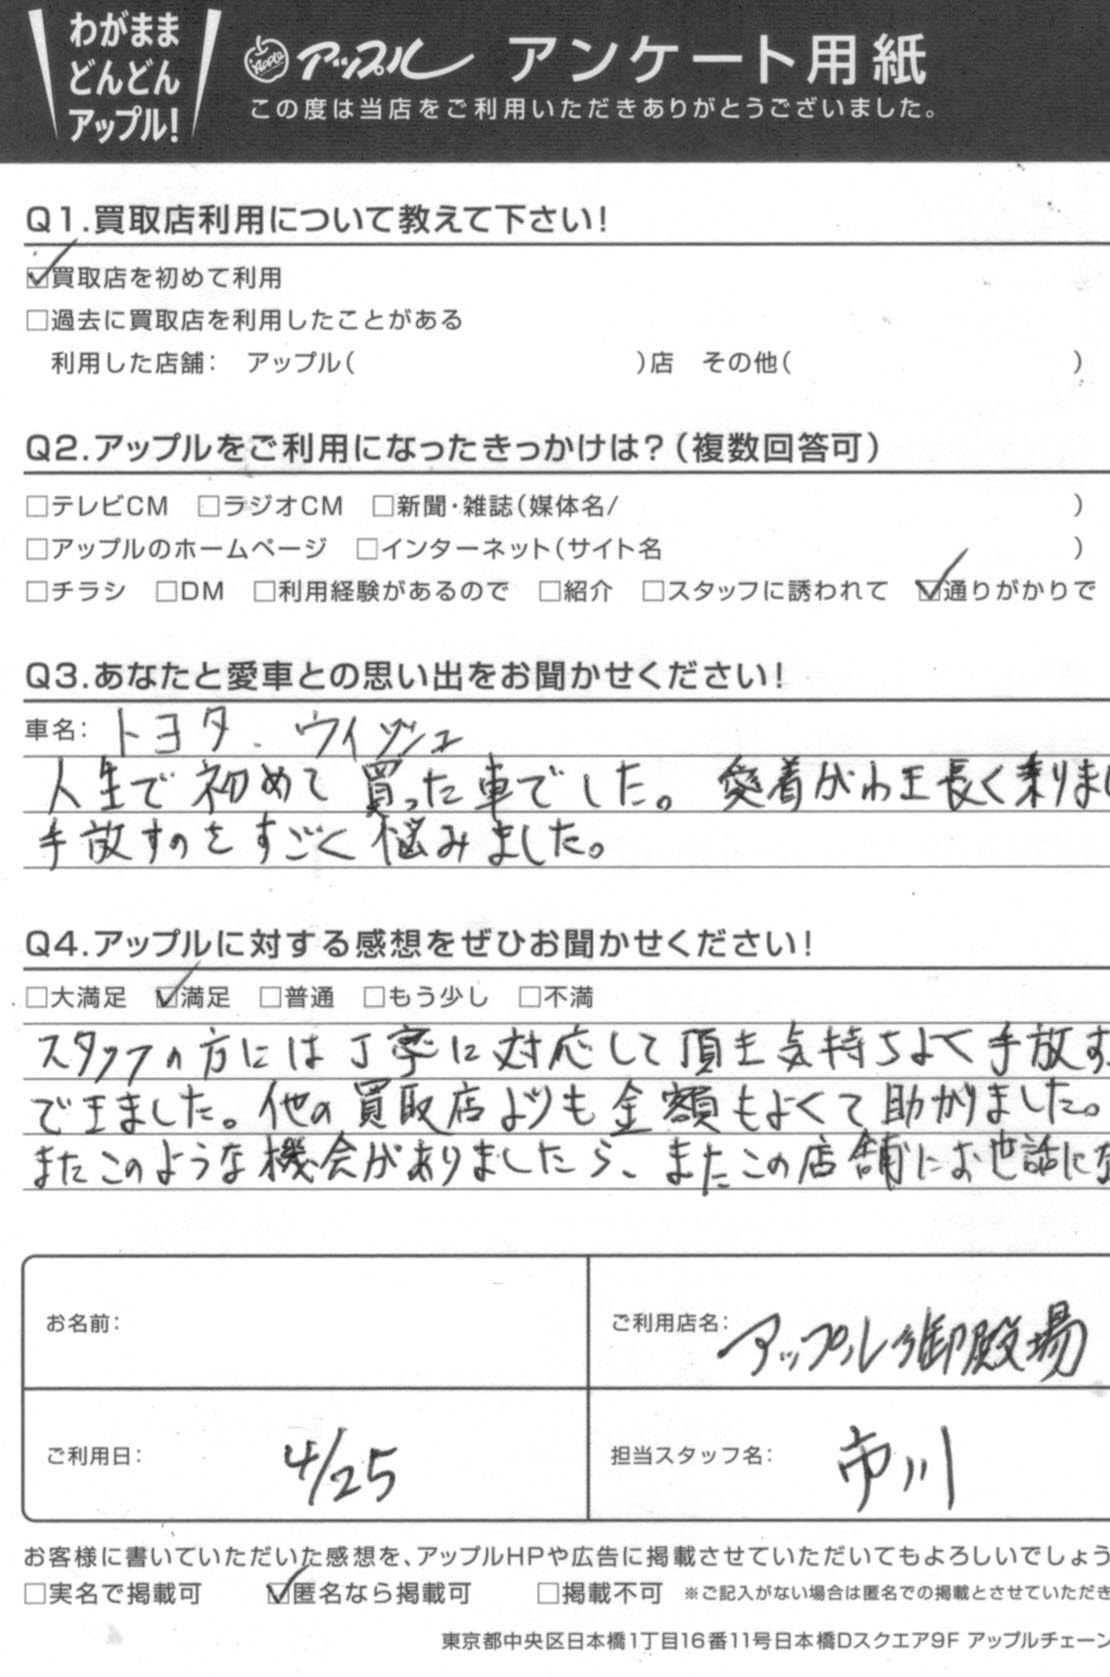 わがまま
どんどん
アップル!
Apple アップル アンケート用紙
この度は当店をご利用いただきありがとうございました。
Q1.買取店利用について教えて下さい!
☑買取店を初めて利用
□過去に買取店を利用したことがある
利用した店舗: アップル( )店 その他( )
Q2.アップルをご利用になったきっかけは?(複数回答可)
□テレビCM □ラジオCM □新聞・雑誌(媒体名/ )
□アップルのホームページ □インターネット(サイト名 )
□チラシ □DM □利用経験があるので □紹介 □スタッフに誘われて ☑通りがかりで
Q3.あなたと愛車との思い出をお聞かせください!
車名: トヨタ.ウィッシュ
人生で初めて買った車でした。愛着がわき長く乗りまし
手放すのをすごく悩みました。
Q4.アップルに対する感想をぜひお聞かせください!
□大満足 ☑満足 □普通 □もう少し □不満
スタッフの方には丁寧に対応して頂き気持ちよく手放す
できました。他の買取店よりも金額もよくて助かりました。
またこのような機会がありましたら、またこの店舗にお世話にな
お名前:
ご利用店名: アップル御殿場
ご利用日: 4/25
担当スタッフ名: 市川
お客様に書いていただいた感想を、アップルHPや広告に掲載させていただいてもよろしいでしょう
□実名で掲載可 ☑匿名なら掲載可 □掲載不可 ※ご記入がない場合は匿名での掲載とさせていただき
東京都中央区日本橋1丁目16番11号日本橋Dスクエア9F アップルチェーン